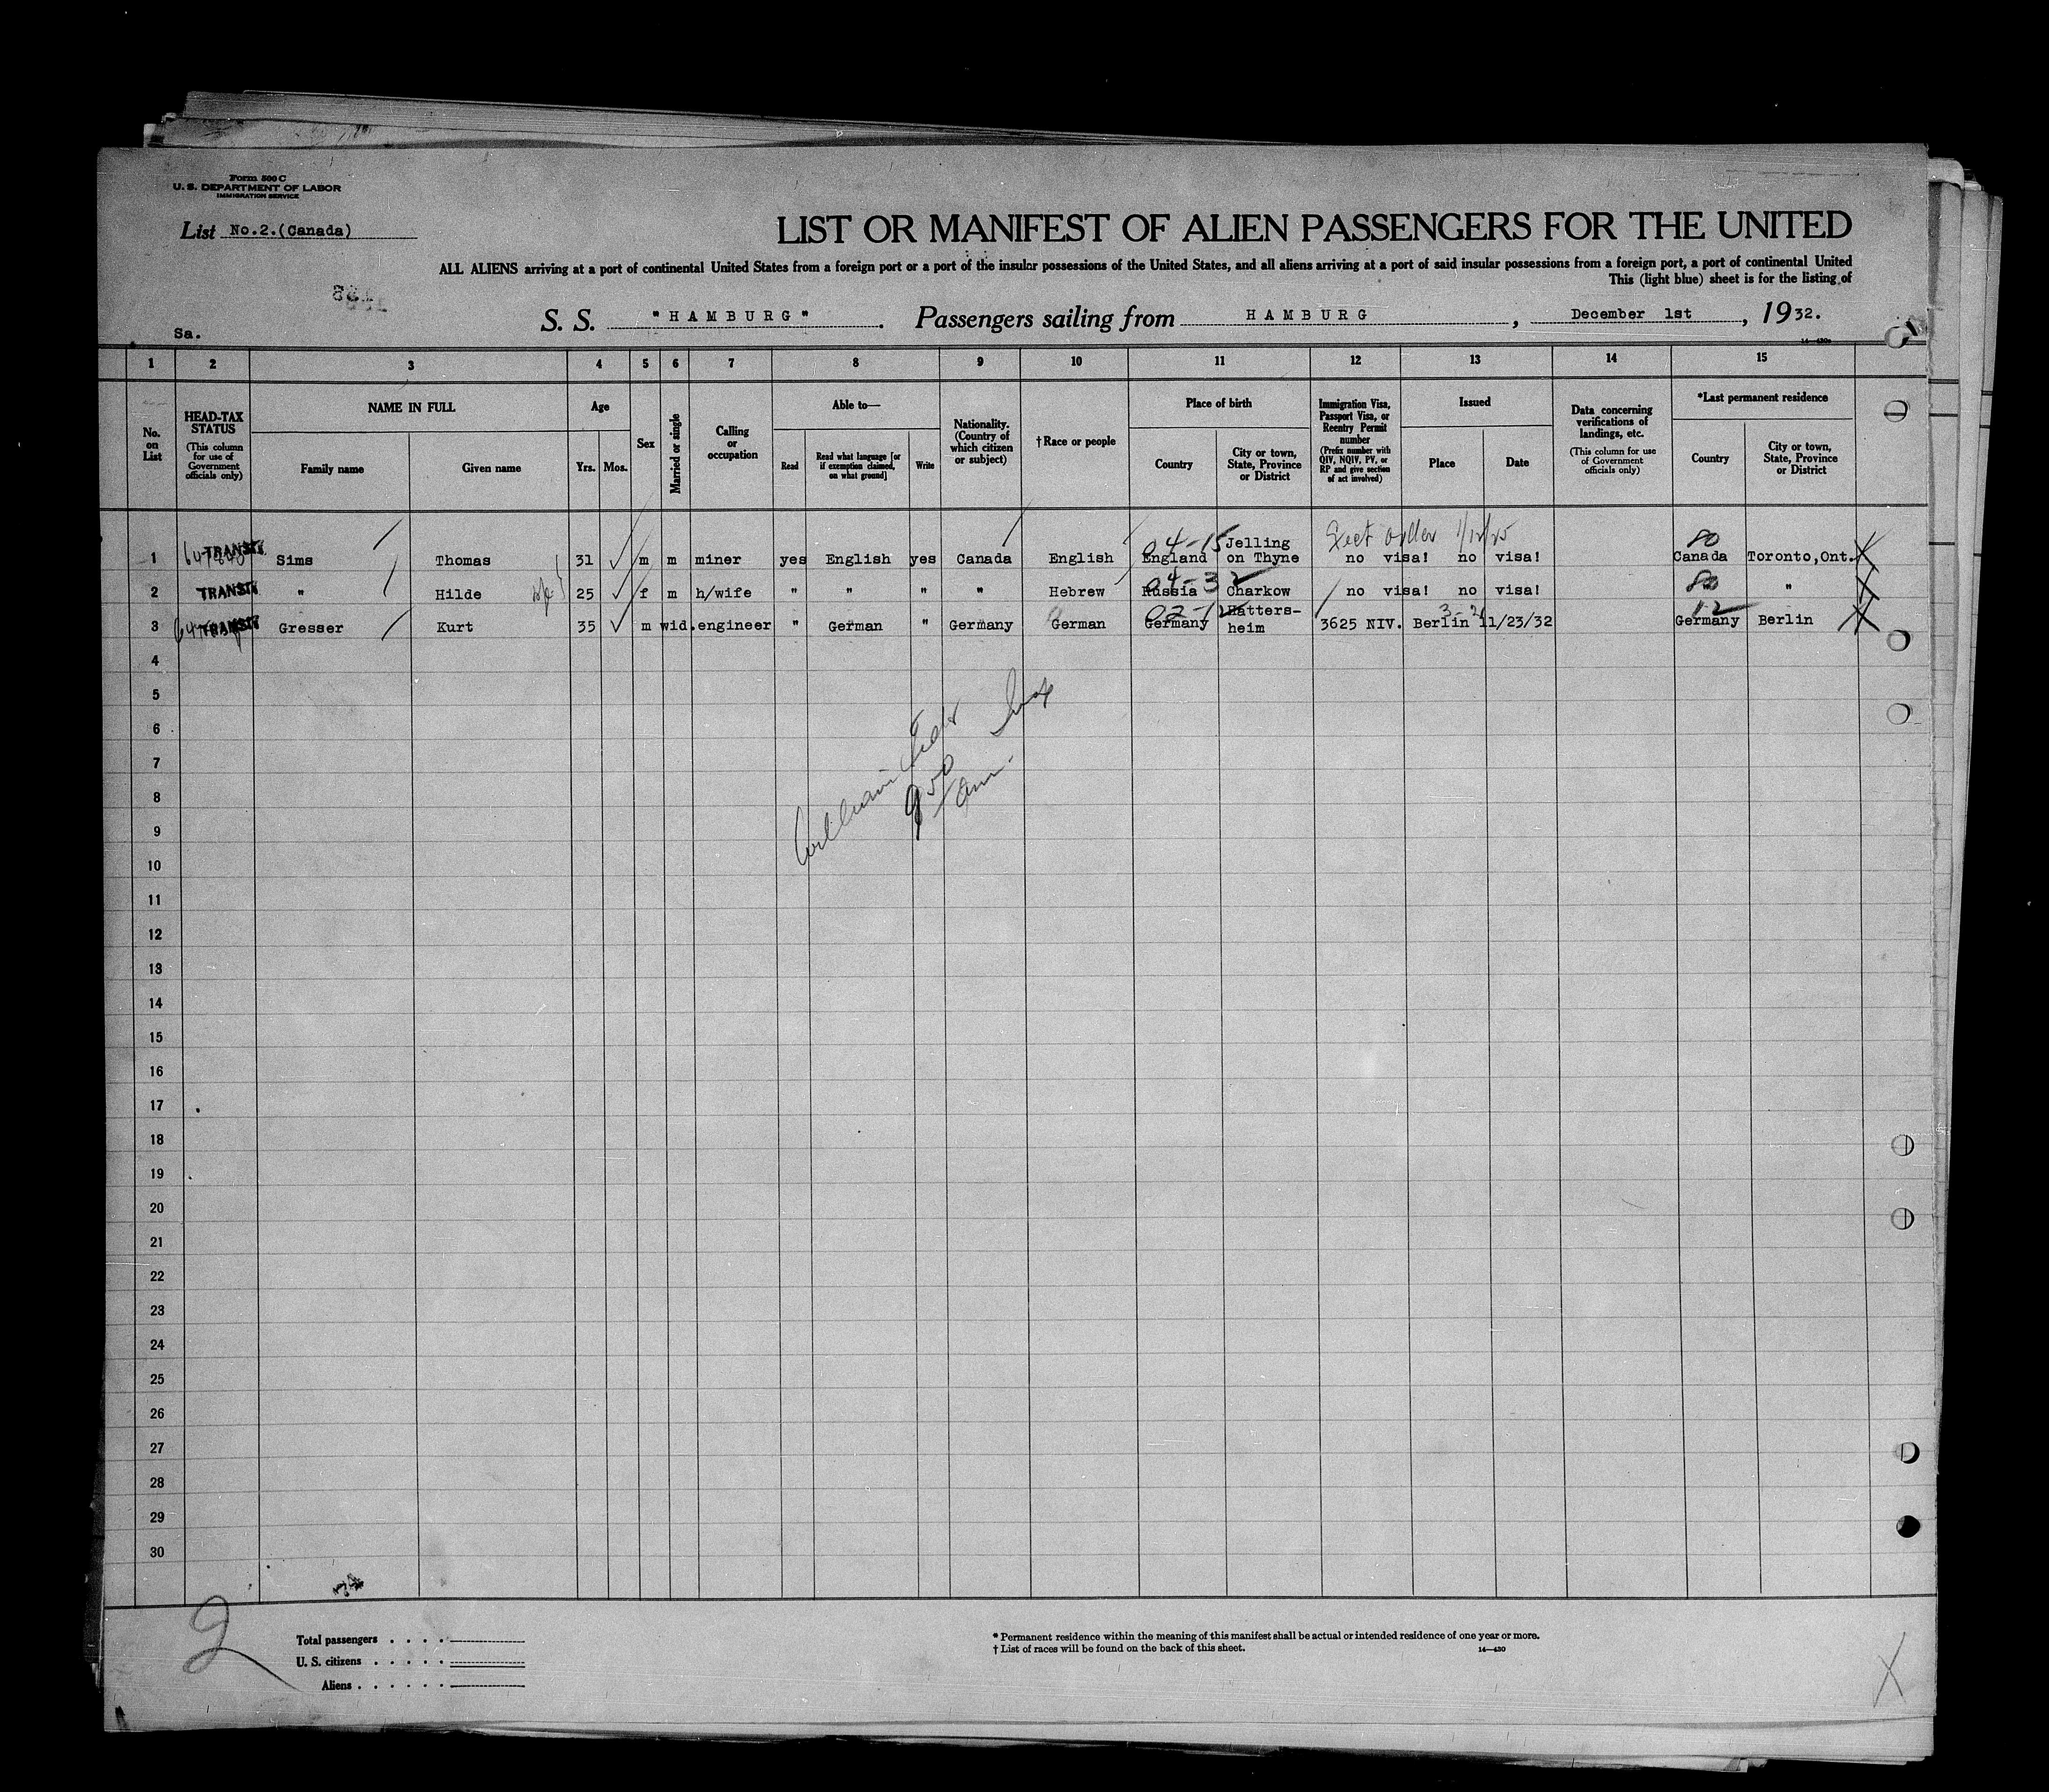 Form 500 C
U. S. DEPARTMENT OF LABOR
IMMIGRATION SERVICE
List No.2.(Canada)
LIST OR MANIFEST OF ALIEN PASSENGERS FOR THE UNITED
ALL ALIENS arriving at a port of continental United States from a foreign port or a port of the insular possessions of the United States, and all aliens arriving at a port of said insular possessions from a foreign port, a port of continental United
This (light blue) sheet is for the listing of
S. S. "HAMBURG". Passengers sailing from HAMBURG, December 1st, 1932.
Sa.
1 2 3 4 5 6 7 8 9 10 11 12 13 14 15
No. on List
HEAD-TAX STATUS
(This column for use of Government officials only)
NAME IN FULL
Family name
Given name
Age
Yrs. Mos.
Sex
Married or single
Calling or occupation
Able to—
Read
Read what language [or if exemption claimed, on what ground]
Write
Nationality. (Country of which citizen or subject)
†Race or people
Place of birth
Country
City or town, State, Province or District
Immigration Visa, Passport Visa, or Reentry Permit number
(Prefix number with QIV, NQIV, PV, or RP and give section of act involved)
Issued
Place
Date
Data concerning verifications of landings, etc.
(This column for use of Government officials only)
*Last permanent residence
Country
City or town, State, Province or District
1 TRANSIT Sims Thomas 31 m m miner yes English yes Canada English 04-15 England Jelling on Thyne no visa! no visa! 80 Canada Toronto,Ont.
2 TRANSIT " Hilde 25 f m h/wife " " " " Hebrew 04-3 Russia Charkow no visa! no visa! 80 "
3 TRANSIT Gresser Kurt 35 m wid. engineer " German " Germany German Germany Hattersheim 3625 NIV. Berlin 11/23/32 12 Germany Berlin
4
5
6
7
8
9
10
11
12
13
14
15
16
17
18
19
20
21
22
23
24
25
26
27
28
29
30
2
Total passengers
U. S. citizens
Aliens
* Permanent residence within the meaning of this manifest shall be actual or intended residence of one year or more.
† List of races will be found on the back of this sheet.
14—430
X